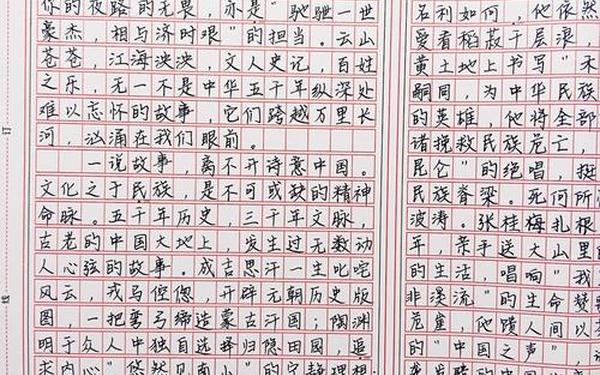 你的夜路的无畏，亦是“驰骋一世
豪杰，相与济时艰”的担当。云山
苍苍，江海泱泱，文人史记，百姓
之乐，无一不是中华五千年纵深处
难以忘怀的故事，它们跨越万里长
河，汹涌在我们眼前。
一说故事，离不开诗意中国。
文化之于民族，是不可或缺的精神
命脉。五千年历史，三千年文脉，
古老的中国大地上，发生过无数动
人心弦的故事。成吉思汗一生叱咤
风云，戎马倥偬，开辟元朝历史版
图，一把弯弓缔造蒙古汗国；陶渊
明于众人中独自选择归隐田园，追
求内心“悠然见南山”的宁静理想；
名利如何，他依然
爱看稻菽千层浪，
黄土地上书写“禾
嗣同，为中华民族
的英雄，他将全部
诸挽救民族危亡，
昆仑”的绝唱，挺
民族脊梁。死何所
波涛。张桂梅扎根
年，亲手送大山里
的生活，唱响“我
非溪流”的生命赞
危崖，他馈人间以
的“中国之声”，
订
线